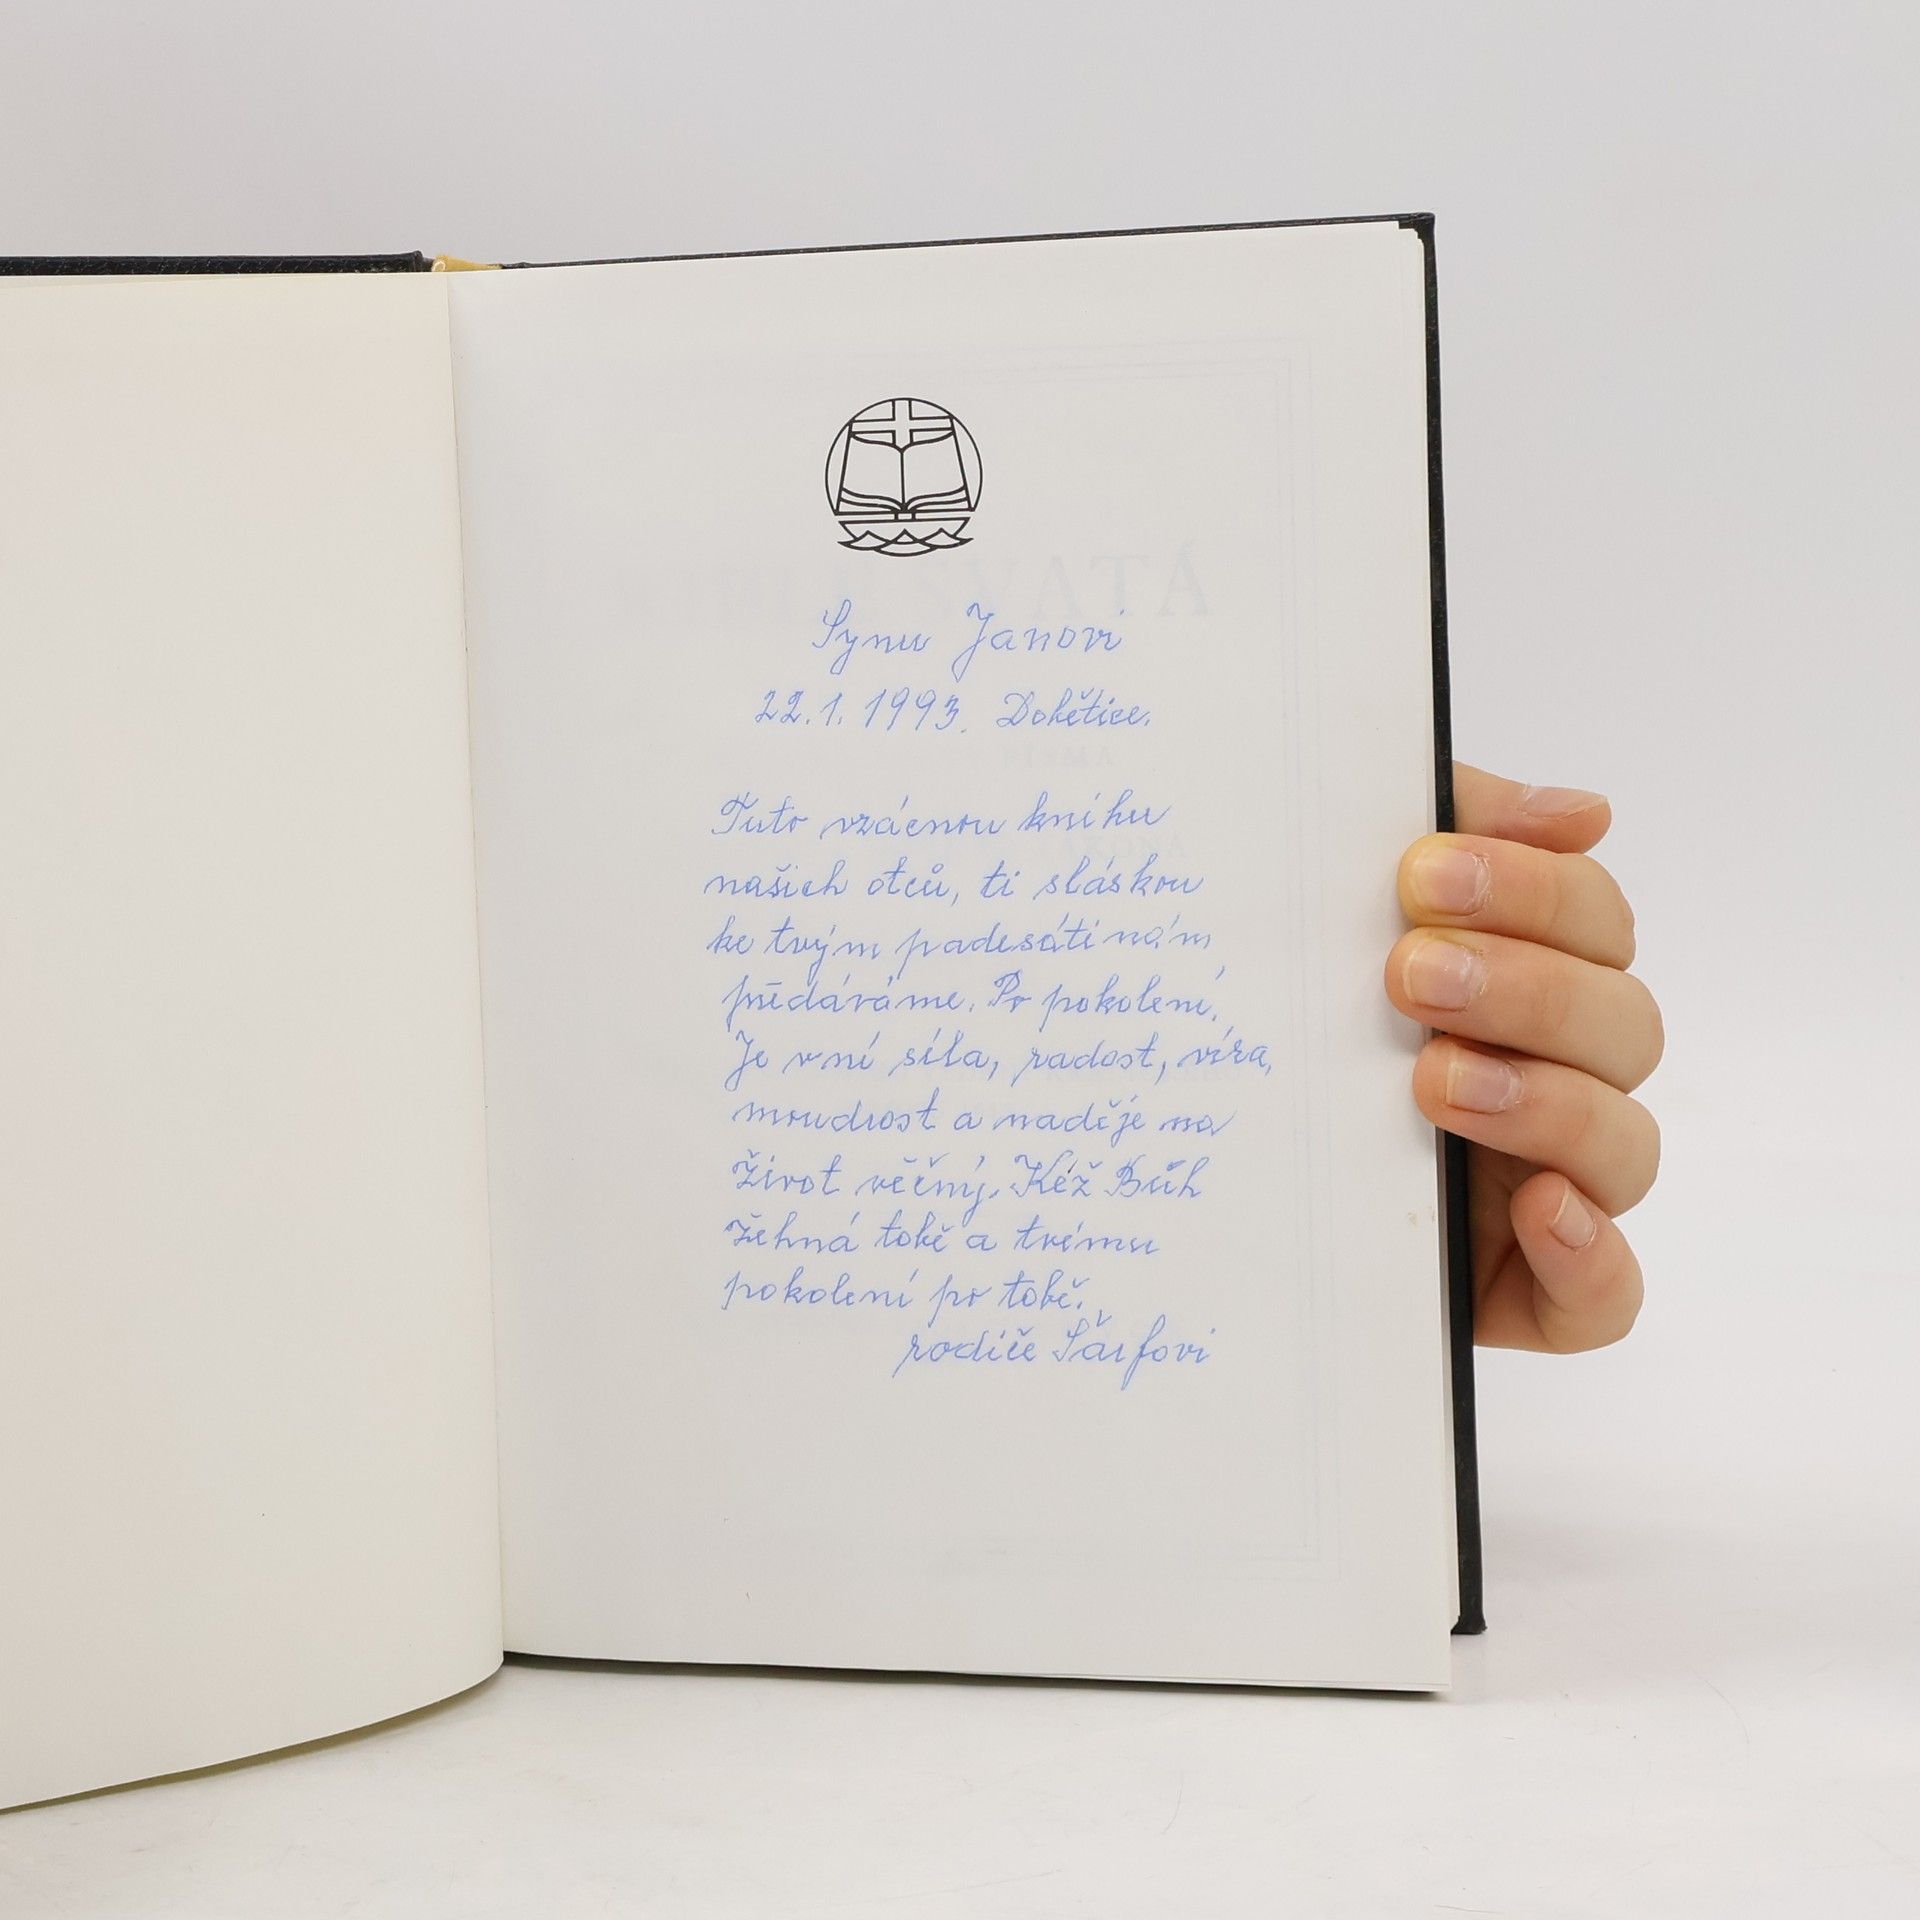 Synu Janovi
22.1.1993. Dobětice.
Tuto vzácnou knihu
našich otců, ti sláskou
ke tvým padesátinám,
předáváme. Po pokolení.
Je vní síla, radost, víra,
moudrost a naděje na
život věčný. Kéž Bůh
žehná tobě a tvému
pokolení po tobě.
rodiče Šárfovi
SVATÁ
PÍSMA